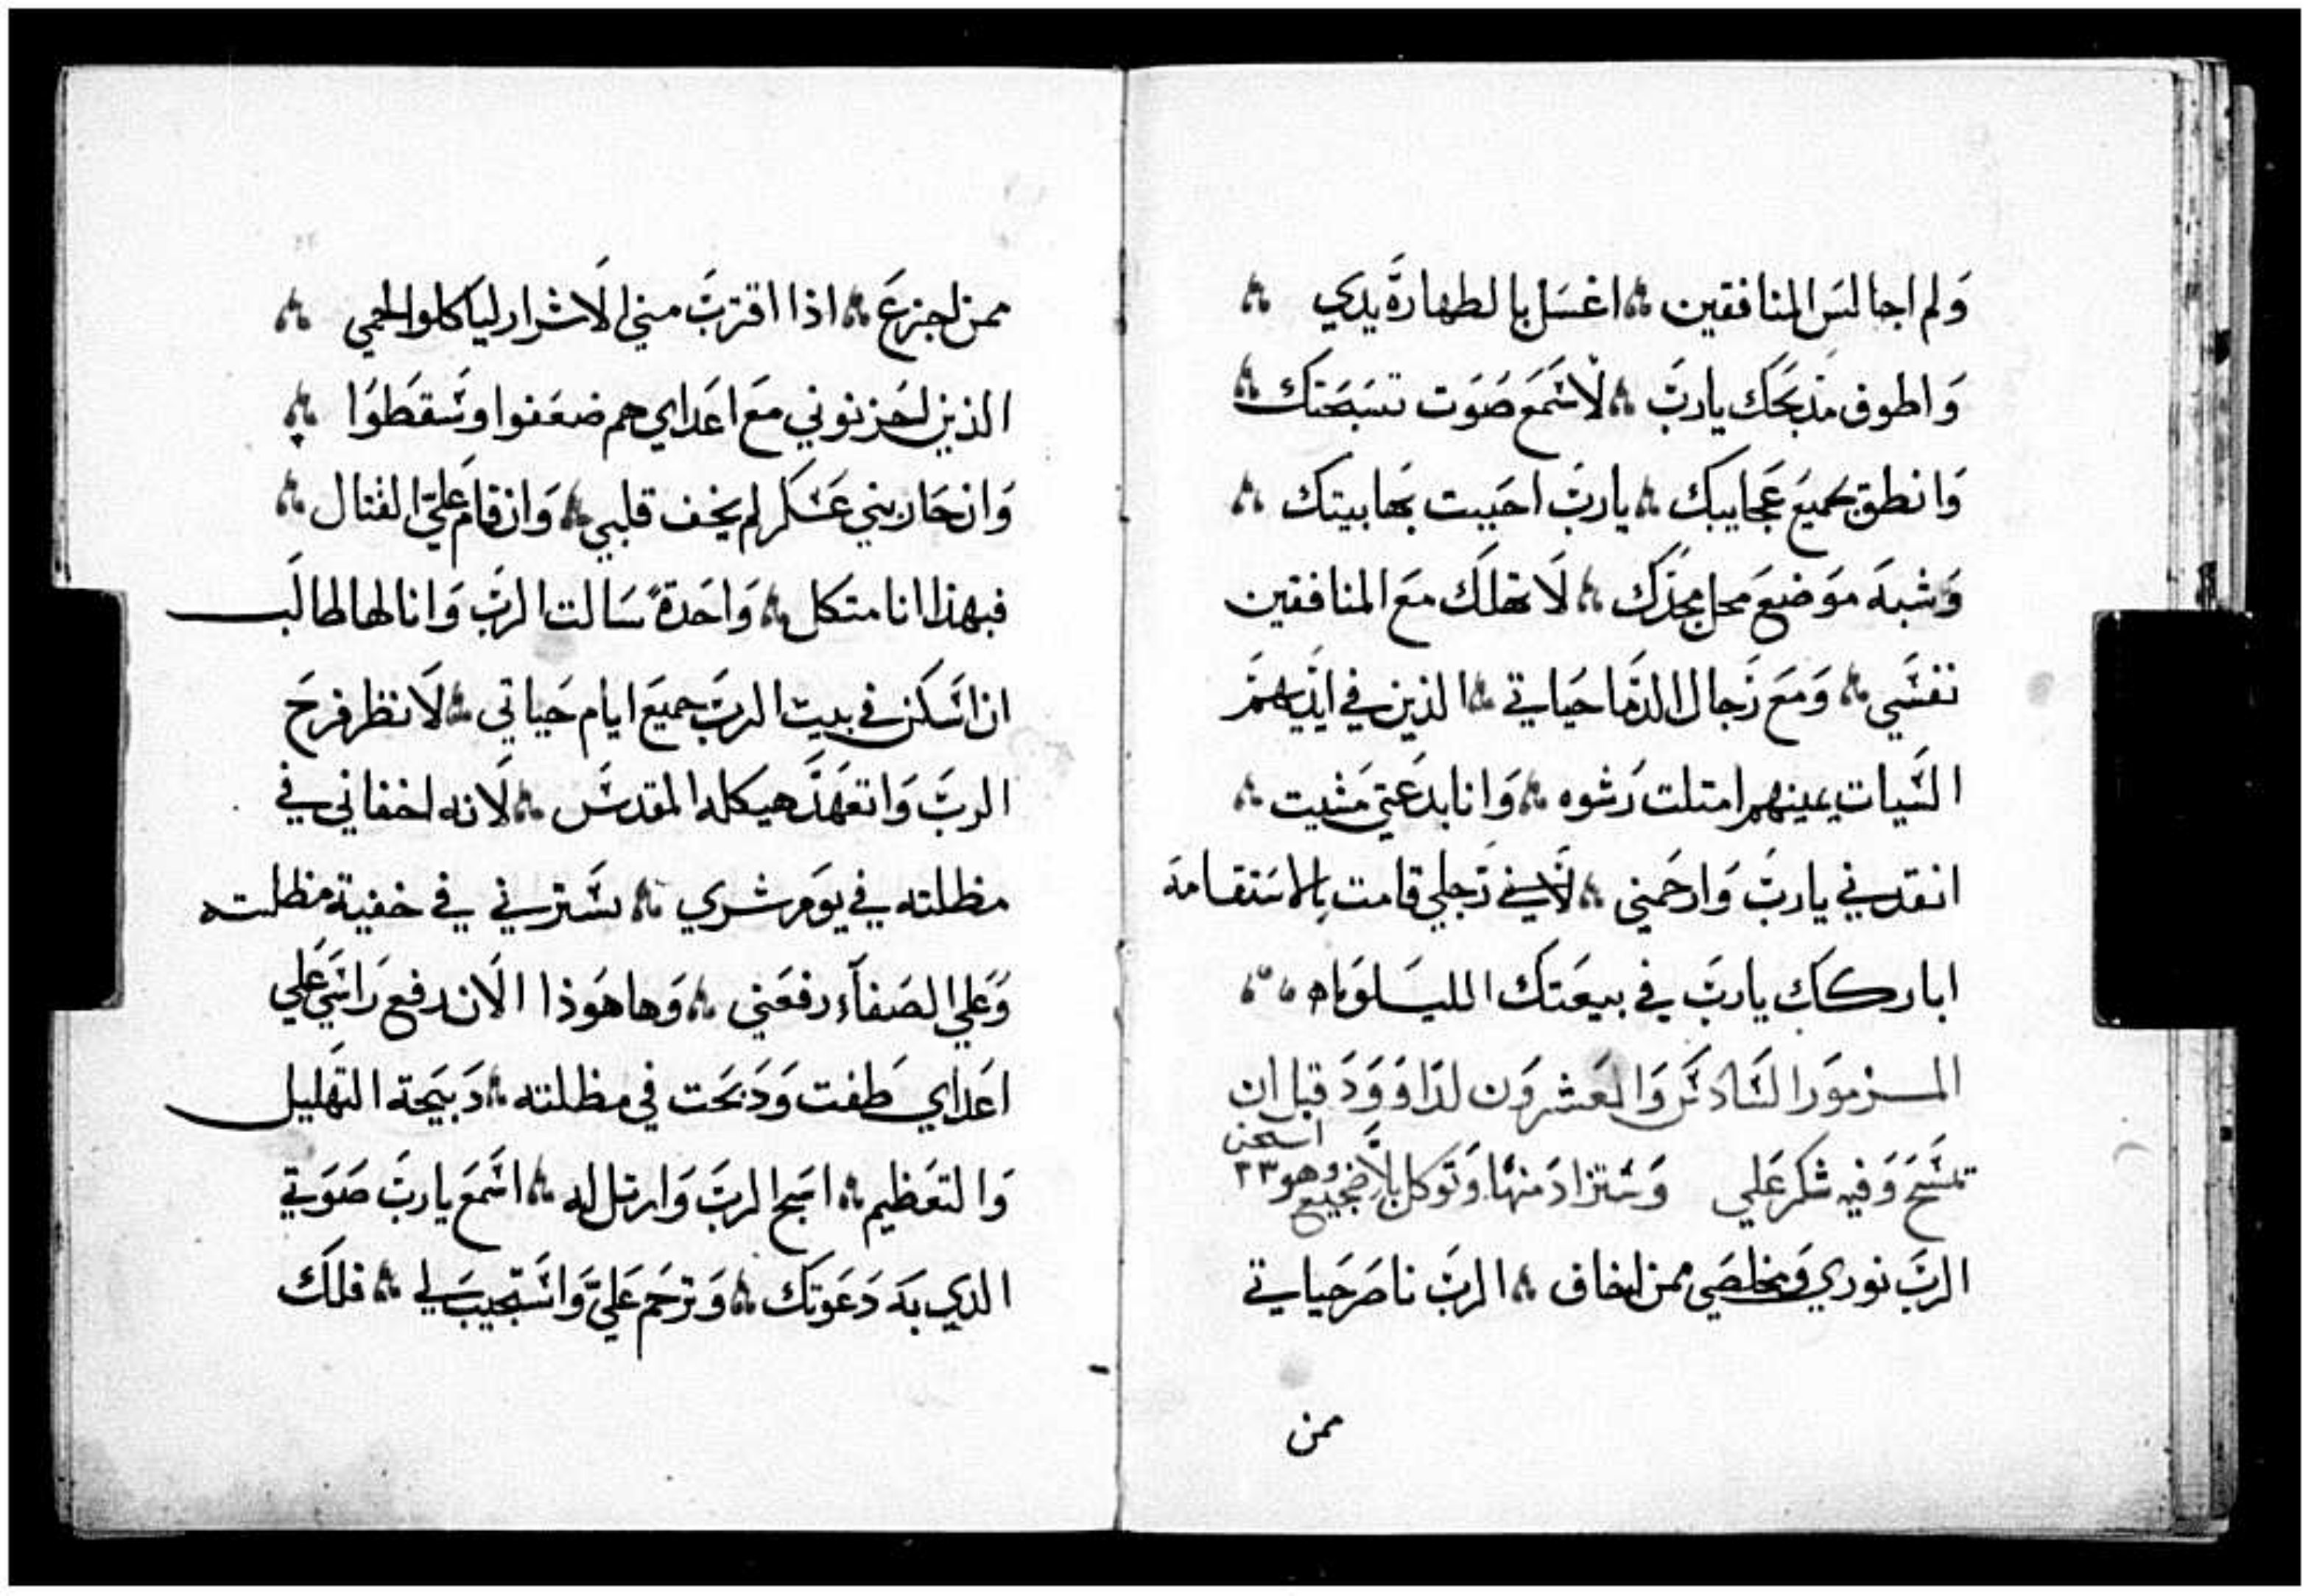 وَلم اجالسَ المنافقين ۞ اغسَل بالطهارَة يدي ۞
وَاطوف مذبحَك يارَبَ ۞ لاسَمَع صَوَت تسَبَحَتك ۞
وَانطق بجميعَ عَجايبك ۞ ياربَ احَببت بَها بيتك ۞
وَشبهَ موَضعَ محل مجدَك ۞ لَا تهلَك معَ المنافقين
نفسَي ۞ وَمعَ رَجال الدمَا حَياتي ۞ الذين في ايَديهمَ
السَيات يمينهم امتلت رَشوه ۞ وَانا بدعَتي مَشيت ۞
انقدني ياربَ وَارحَمني ۞ لَانَ رَجلي قامت بالاسَتقامة
اباركَك ياربَ في بيعَتك الليسَلوَياه ۞
المزموَر السَادسَ وَالعَشروَن لدَاوَوَدَ قبل ان
تمسَحَ وَفيه شكر عَلي وَسَتزادَ منهَا وَتوَكل بلَا ضجيع وهو ٣٣
الربَ نوري وَمخلصَي ممن اخاف ۞ الربَ ناصَر حَياتي
ممن
ممن اجزعَ ۞ اذا اقتربَ مني الَاشرار لياكلوا لحمي ۞
الذين احَزنوني معَ اعَداي هم ضعَفوا وسَقطَوَا ۞
وَان حَاربني عَسَكر لم يخف قلبي ۞ وَان قامَ عَليَ القتال ۞
فبهذا انا متكل ۞ وَاحَدة سَالت الربَ وَانا لها طالَب
ان اسَكن في بيت الربَ جميعَ ايام حَياتي ۞ لَانظر فرحَ
الربَ وَاتعَهَدَ هيكله المقدسَ ۞ لَانه اخفاني في
مظلته في يوَم شري ۞ سَترني في خفية مظلته
وَعَلي الصَفاَء رفعَني ۞ وَها هوَذا الَان رفع رَاسَي عَلي
اعَداي طَفت وَدَبَحَت في مظلته ۞ دَبيَحة التهَليل
وَالتعَظيم ۞ اسَبح الربَ وَارتل له ۞ اسَمَع ياربَ صَوَتي
الدي بهَ دَعَوَتك ۞ وَترحَم عَليَ وَاسَتجيبَ لي ۞ فلكَ